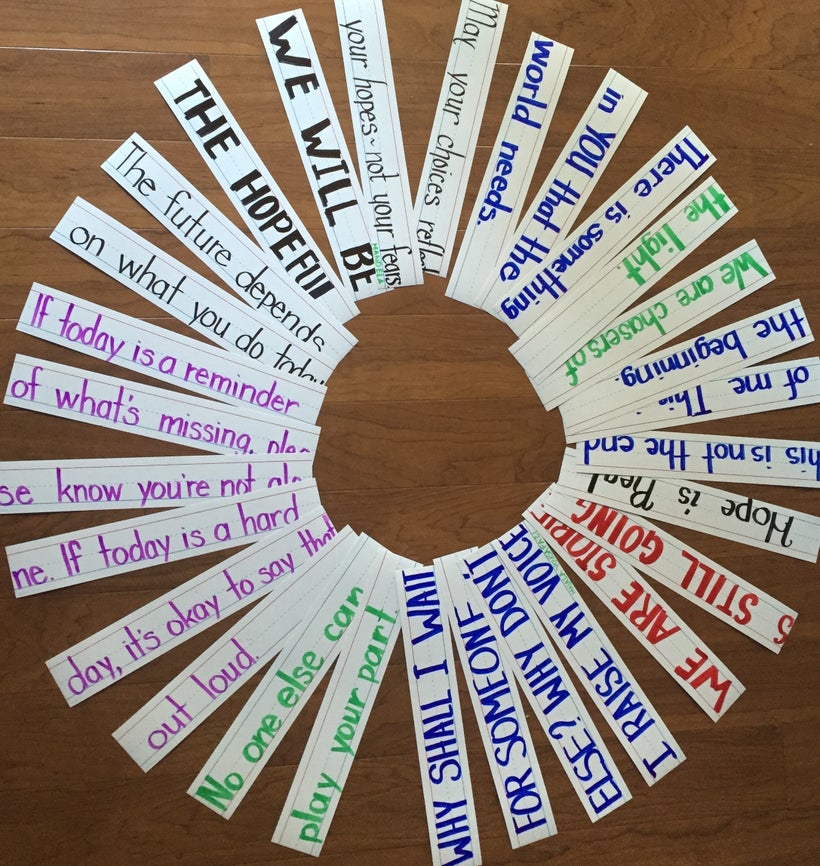 May your choices refle
your hopes~not your fears.
MANDELA
WE WILL BE
THE HOPEFUL
The future depends
on what you do today
If today is a reminder
of what's missing, plea
se know you're not alo
ne. If today is a hard
day, it's okay to say that
out loud.
No one else can
play your part
WHY SHALL I WAIT
FOR SOMEONE
ELSE? WHY DON'T
I RAISE MY VOICE
WE ARE STORIE
S STILL GOING
Hope is Real
his is not the end
of me This
the beginning.
We are chasers of
the light.
There is something
in YOU that the
world needs.